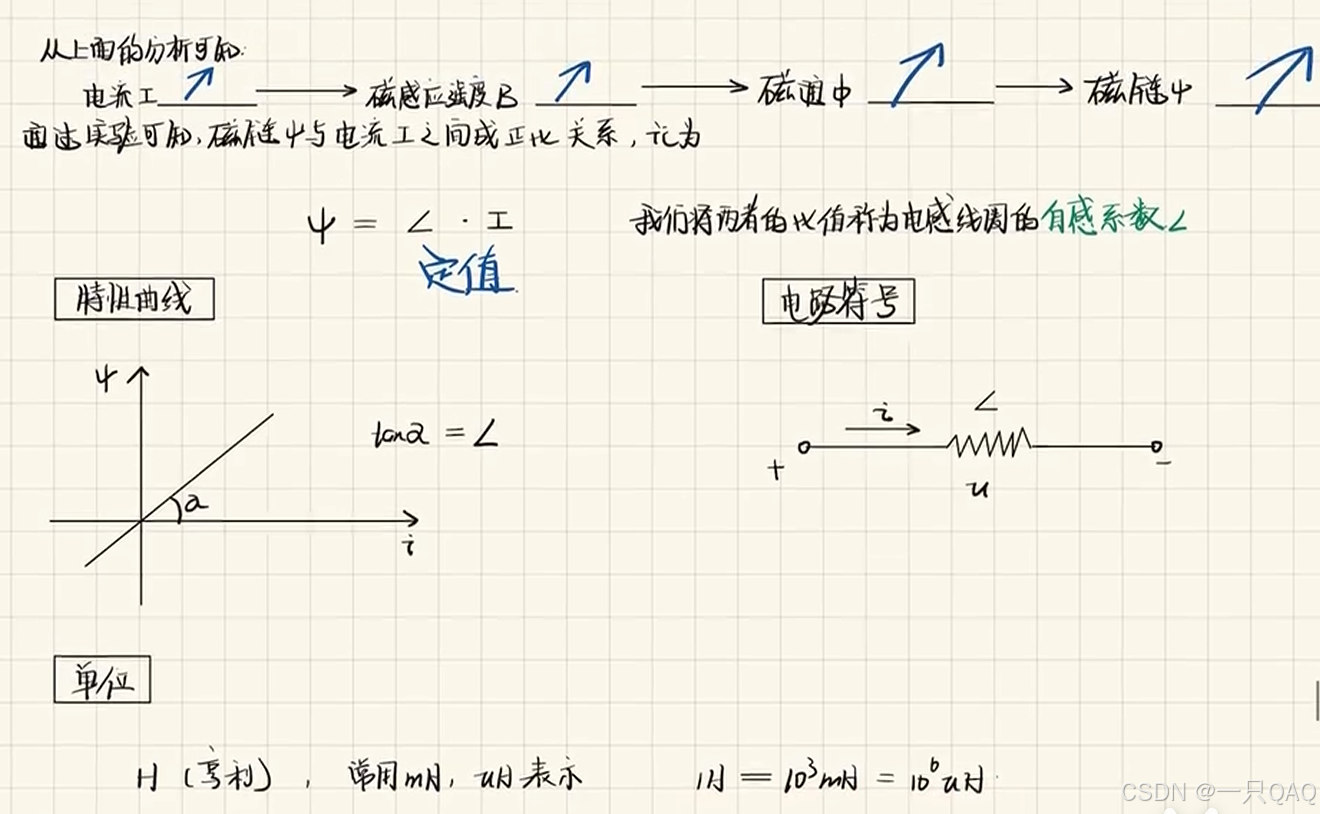 从上面的分析可知:
电流I ↗ → 磁感应强度B ↗ → 磁通Φ ↗ → 磁链Ψ ↗
通过实验可知,磁链Ψ与电流I之间成正比关系,记为
Ψ = L · I 我们将两者的比值称为电感线圈的自感系数L
定值
特性曲线 电路符号
Ψ
tanα = L
α
i
i L
+ -
u
单位
H (亨利) , 常用mH, uH表示 1H = 10³mH = 10⁶uH
CSDN @一只QAQ